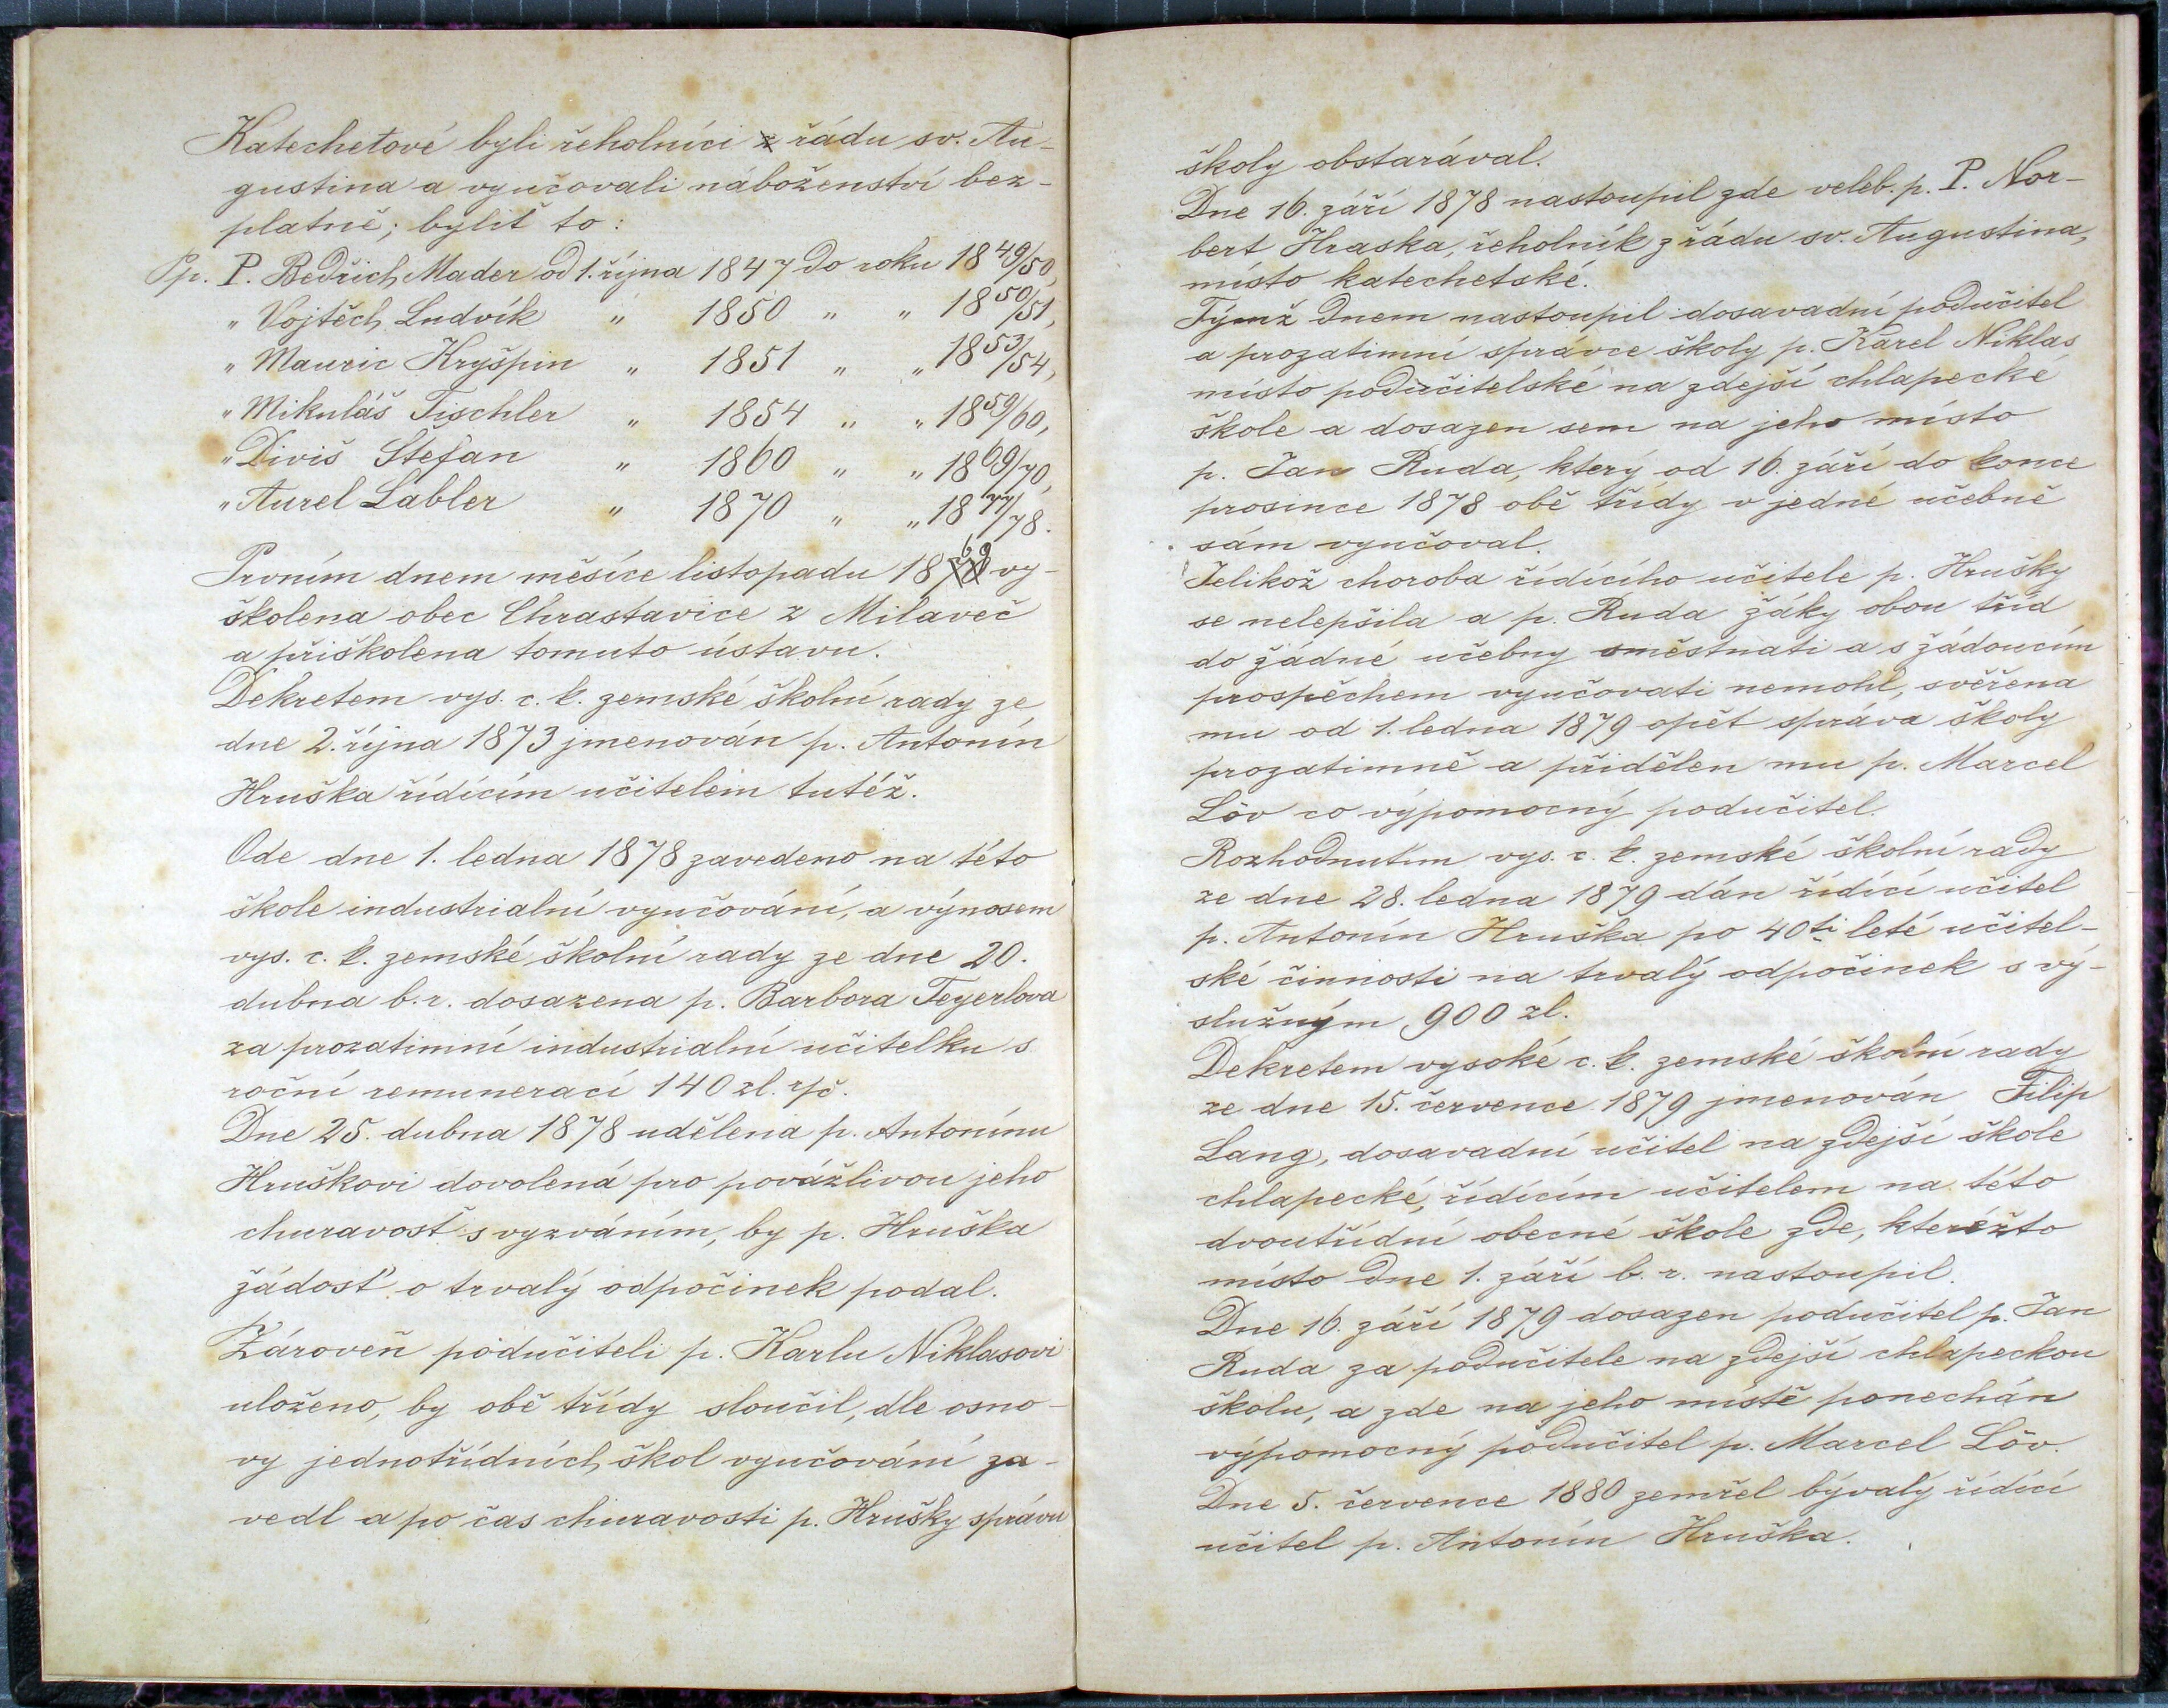 Katechetové byli řeholníci z řádu sv. Au-
gustina a vyučovali náboženství bez-
platně; byliť to:
Pp. P. Bedřich Mader od 1. října 1847 do roku 1849/50,
" Vojtěch Ludvík " 1850 " " 1850/51,
" Mauric Kryšpin " 1851 " " 1853/54,
" Mikuláš Tischler " 1854 " " 1859/60,
" Diviš Štefan " 1860 " " 1869/70,
" Aurel Labler " 1870 " " 1877/78.
Prvním dnem měsíce listopadu 1869 vy-
školena obec Chrastavice z Milaveč
a přiškolena tomuto ústavu.
Dekretem vys. c. k. zemské školní rady ze
dne 2. října 1873 jmenován p. Antonín
Hruška řídícím učitelem tutéž.
Ode dne 1. ledna 1878 zavedeno na této
škole industrialní vyučování, a výnosem
vys. c. k. zemské školní rady ze dne 20.
dubna b. r. dosazena p. Barbora Teyerlova
za prozatimní industrialní učitelku s
roční remunerací 140 zl. r/č.
Dne 25. dubna 1878 udělena p. Antonínu
Hruškovi dovolená pro povážlivou jeho
churavosť s vyzváním, by p. Hruška
žádosť o trvalý odpočinek podal.
Zároveň podučiteli p. Karlu Niklasovi
uloženo, by obě třídy sloučil, dle osno-
vy jednotřídních škol vyučování za-
vedl a po čas churavosti p. Hrušky správu
školy obstarával.
Dne 16. září 1878 nastoupil zde veleb. p. P. Nor-
bert Hraska, řeholník z řádu sv. Augustina,
místo katechetské.
Týmž dnem nastoupil dosavadní podučitel
a prozatimní správce školy p. Karel Niklas
místo podučitelské na zdejší chlapecké
škole a dosazen sem na jeho místo
p. Jan Ruda, který od 16. září do konce
prosince 1878 obě třídy v jedné učebně
sám vyučoval.
Jelikož choroba řídícího učitele p. Hrušky
se nelepšila a p. Ruda žáky obou tříd
do žádné učebny směstnati a s žádoucím
prospěchem vyučovati nemohl, svěřena
mu od 1. ledna 1879 opět správa školy
prozatimně a přidělen mu p. Marcel
Löv co výpomocný podučitel.
Rozhodnutím vys. c. k. zemské školní rady
ze dne 28. ledna 1879 dán řídící učitel
p. Antonín Hruška po 40ti leté učitel-
ské činnosti na trvalý odpočinek s vý-
služným 900 zl.
Dekretem vysoké c. k. zemské školní rady
ze dne 15. července 1879 jmenován Filip
Lang, dosavadní učitel na zdejší škole
chlapecké, řídícím učitelem na této
dvoutřídní obecné škole zde, kteréžto
místo dne 1. září b. r. nastoupil.
Dne 16. září 1879 dosazen podučitel p. Jan
Ruda za podučitele na zdejší chlapeckou
školu, a zde na jeho místě ponechán
výpomocný podučitel p. Marcel Löv.
Dne 5. července 1880 zemřel bývalý řídící
učitel p. Antonín Hruška.